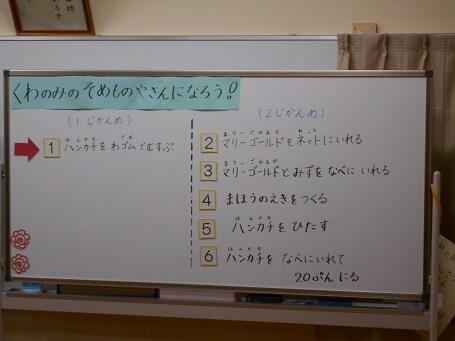 くわのみのそめものやさんになろう！
(1じかんめ)
1 ハンカチをわゴムでむすぶ
(2じかんめ)
2 マリーゴールドをネットにいれる
3 マリーゴールドとみずをなべにいれる
4 まほうのえきをつくる
5 ハンカチをひたす
6 ハンカチをなべにいれて
20ぷんにる